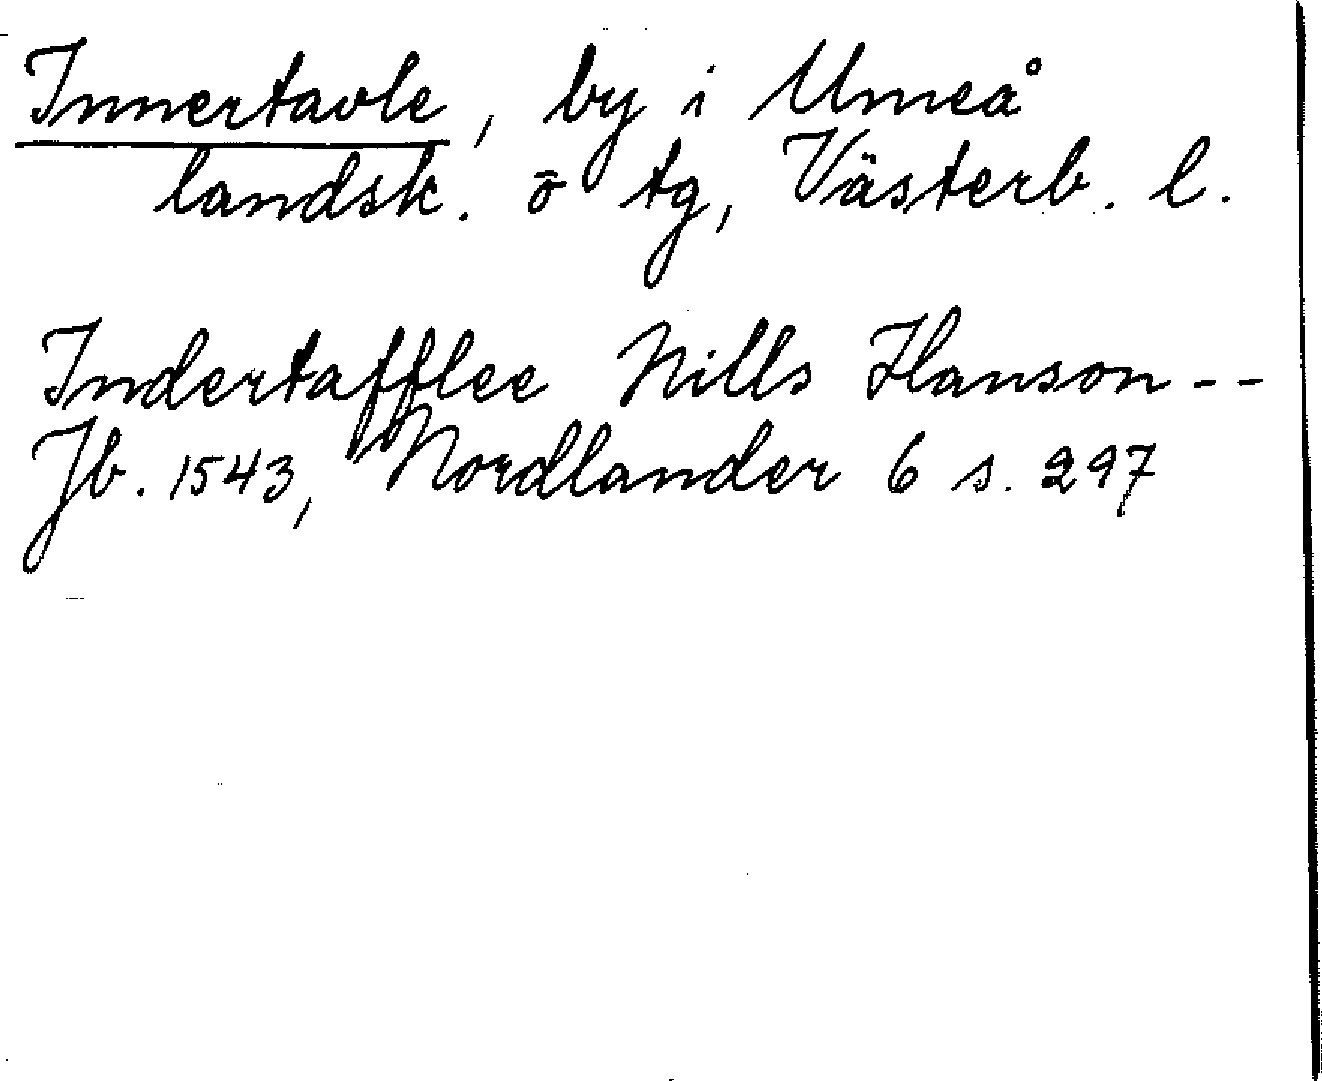 Innertavle, by i Umeå
landsk. o tg, Västerb. l.
Indertafflee Nills Hanson--
Jb. 1543, Nordlander 6 s. 297